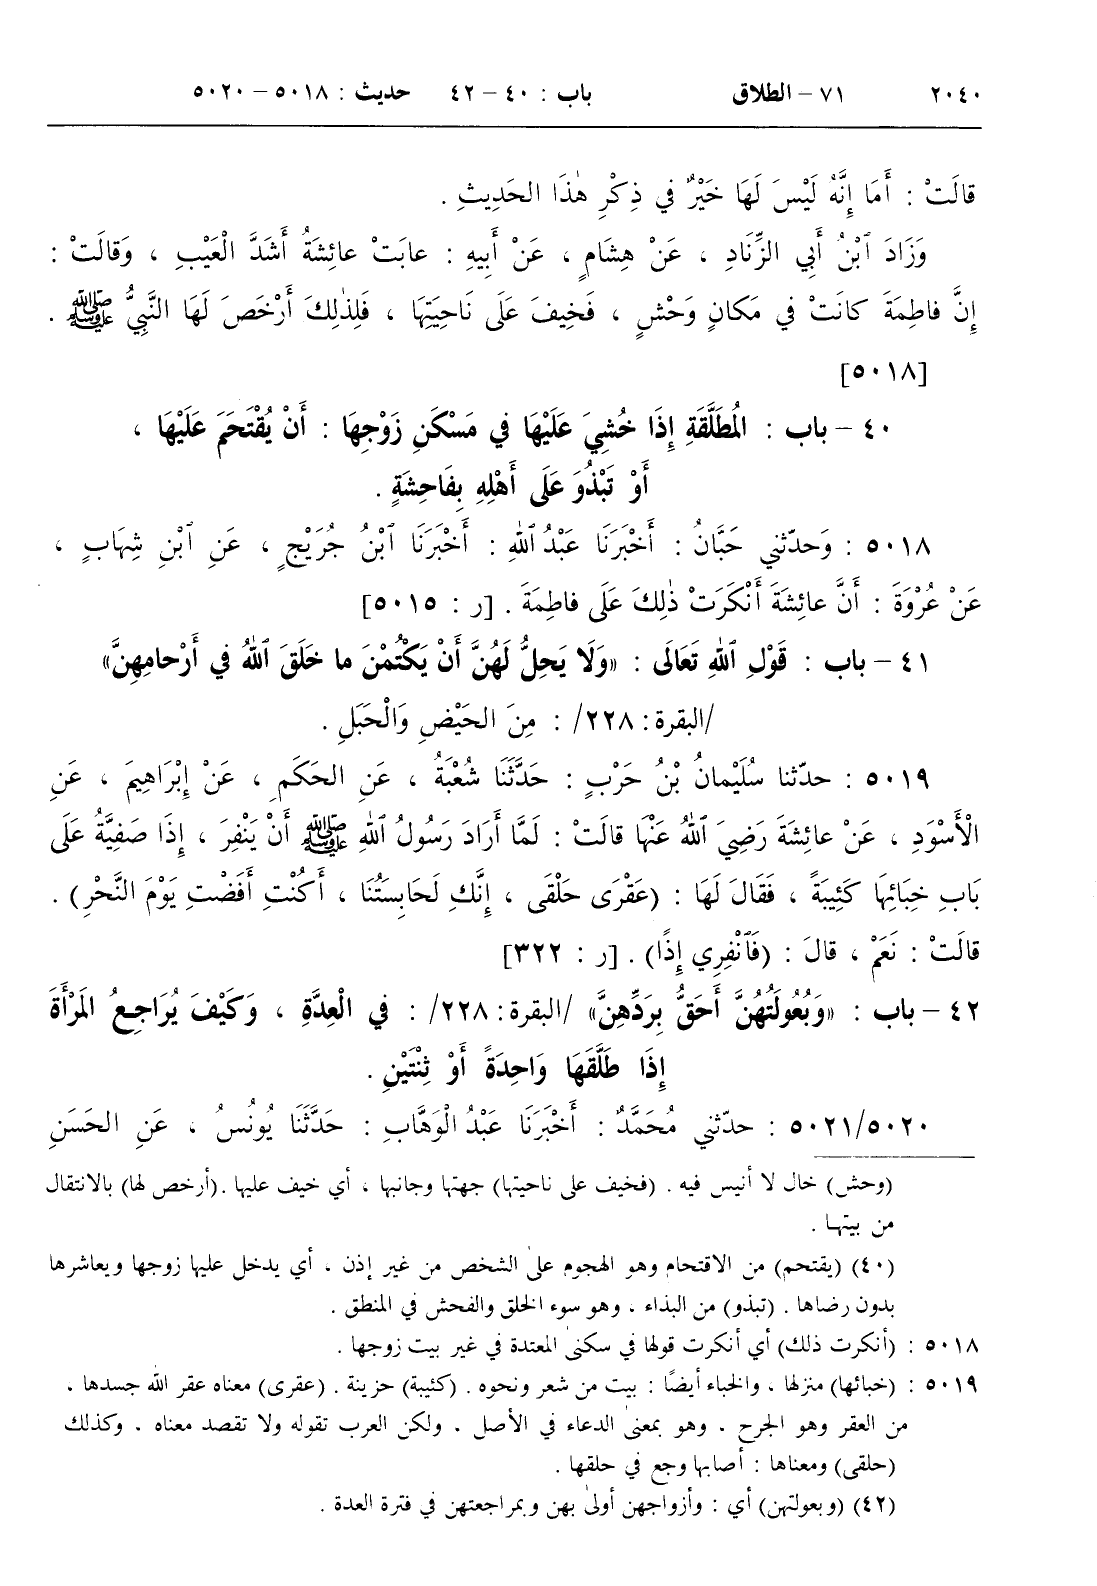 ٢٠٤٠ ٧١ – الطلاق باب : ٤٠ – ٤٢ حديث : ٥٠١٨ – ٥٠٢٠
قالَتْ : أَمَا إِنَّهُ لَيْسَ لَهَا خَيْرٌ في ذِكْرِ هٰذَا الحَدِيثِ .
وَزَادَ ٱبْنُ أَبِي الزِّنَادِ ، عَنْ هِشَامٍ ، عَنْ أَبِيهِ : عابَتْ عائِشَةُ أَشَدَّ الْعَيْبِ ، وَقالَتْ :
إِنَّ فاطِمَةَ كانَتْ في مَكانٍ وَحْشٍ ، فَخِيفَ عَلَى نَاحِيَتِهَا ، فَلِذٰلِكَ أَرْخَصَ لَهَا النَّبِيُّ ﷺ .
[٥٠١٨]
٤٠ – باب : المُطَلَّقَةِ إِذَا خُشِيَ عَلَيْهَا في مَسْكَنِ زَوْجِهَا : أَنْ يُقْتَحَمَ عَلَيْهَا ،
أَوْ تَبْذُوَ عَلَى أَهْلِهِ بِفَاحِشَةٍ .
٥٠١٨ : وَحدّثني حَبَّانُ : أَخْبَرَنَا عَبْدُ ٱللهِ : أَخْبَرَنَا ٱبْنُ جُرَيْجٍ ، عَنِ ٱبْنِ شِهَابٍ ،
عَنْ عُرْوَةَ : أَنَّ عائِشَةَ أَنْكَرَتْ ذٰلِكَ عَلَى فاطِمَةَ . [ر : ٥٠١٥]
٤١ – باب : قَوْلِ ٱللهِ تَعَالَى : «وَلَا يَحِلُّ لَهُنَّ أَنْ يَكْتُمْنَ ما خَلَقَ ٱللهُ في أَرْحامِهِنَّ»
/البقرة: ٢٢٨/ : مِنَ الحَيْضِ وَالْحَبَلِ .
٥٠١٩ : حدّثنا سُلَيْمانُ بْنُ حَرْبٍ : حَدَّثَنَا شُعْبَةُ ، عَنِ الحَكَمِ ، عَنْ إِبْرَاهِيمَ ، عَنِ
الْأَسْوَدِ ، عَنْ عائِشَةَ رَضِيَ ٱللهُ عَنْهَا قالَتْ : لَمَّا أَرَادَ رَسُولُ ٱللهِ ﷺ أَنْ يَنْفِرَ ، إِذَا صَفِيَّةُ عَلَى
بَابِ خِبَائِهَا كَئِيبَةً ، فَقَالَ لَهَا : (عَقْرَى حَلْقَى ، إِنَّكِ لَحَابِسَتُنَا ، أَكُنْتِ أَفَضْتِ يَوْمَ النَّحْرِ) .
قالَتْ : نَعَمْ ، قالَ : (فَٱنْفِرِي إِذًا) . [ر : ٣٢٢]
٤٢ – باب : «وَبُعُولَتُهُنَّ أَحَقُّ بِرَدِّهِنَّ» /البقرة: ٢٢٨/ : في الْعِدَّةِ ، وَكَيْفَ يُرَاجِعُ المَرْأَةَ
إِذَا طَلَّقَهَا وَاحِدَةً أَوْ ثِنْتَيْنِ .
٥٠٢١/٥٠٢٠ : حدّثني مُحَمَّدٌ : أَخْبَرَنَا عَبْدُ الْوَهَّابِ : حَدَّثَنَا يُونُسُ ، عَنِ الحَسَنِ
(وحش) خال لا أنيس فيه . (فخيف على ناحيتها) جهتها وجانبها ، أي خيف عليها .(أرخص لها) بالانتقال
من بيتها .
(٤٠) (يقتحم) من الاقتحام وهو الهجوم على الشخص من غير إذن ، أي يدخل عليها زوجها ويعاشرها
بدون رضاها . (تبذو) من البذاء ، وهو سوء الخلق والفحش في المنطق .
٥٠١٨ : (أنكرت ذلك) أي أنكرت قولها في سكنى المعتدة في غير بيت زوجها .
٥٠١٩ : (خبائها) منزلها ، والخباء أيضًا : بيت من شعر ونحوه . (كئيبة) حزينة . (عقرى) معناه عقر الله جسدها ،
من العقر وهو الجرح . وهو بمعنى الدعاء في الأصل . ولكن العرب تقوله ولا تقصد معناه . وكذلك
(حلقى) ومعناها : أصابها وجع في حلقها .
(٤٢) (وبعولتهن) أي : وأزواجهن أولى بهن وبمراجعتهن في فترة العدة .